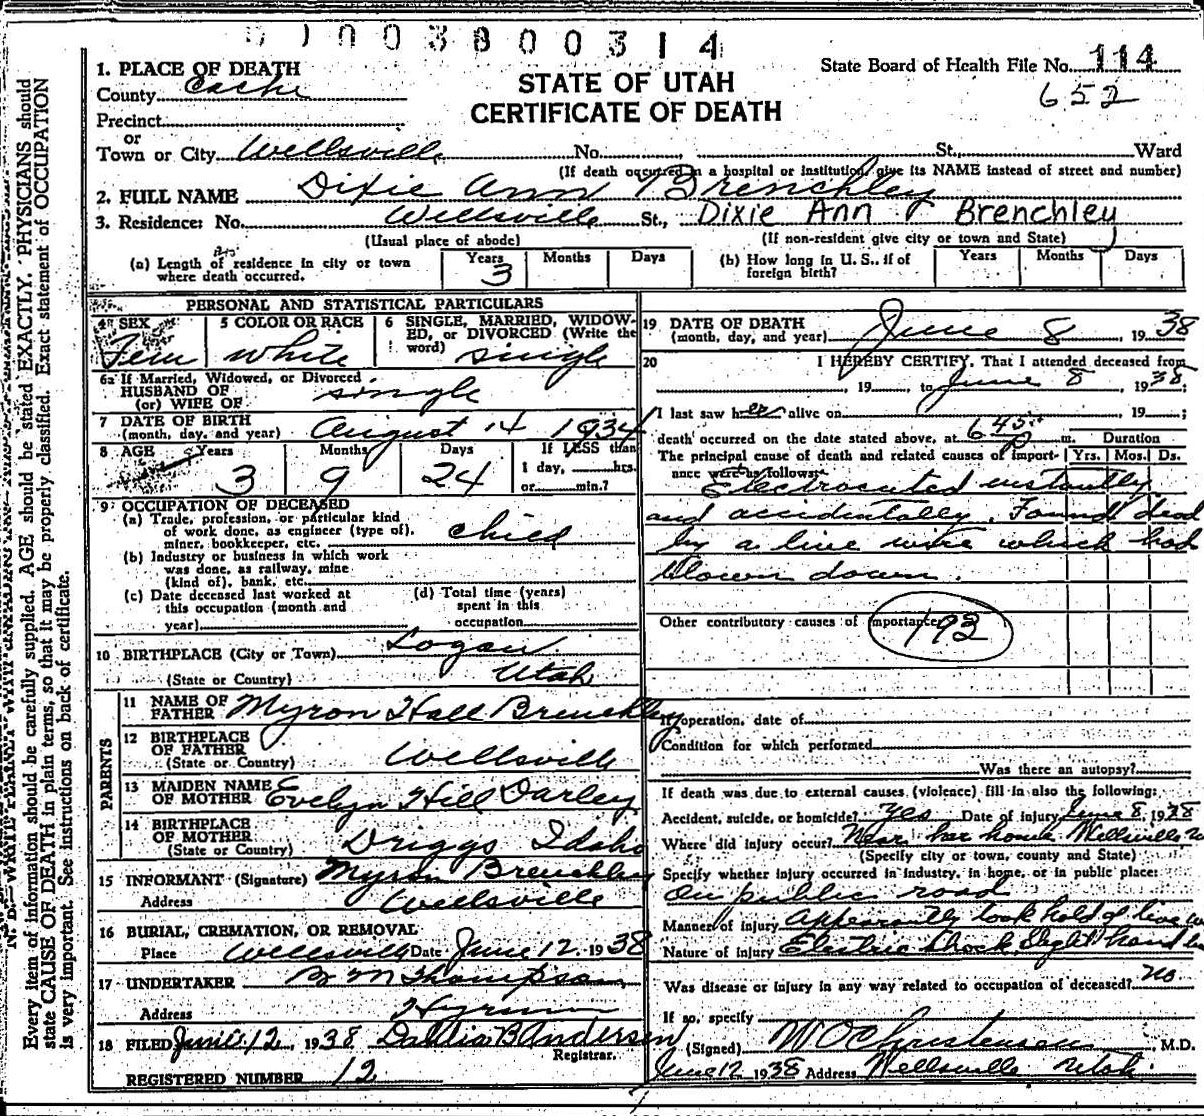 0 0 0 3 8 0 0 3 1 4
1. PLACE OF DEATH
County Cache
STATE OF UTAH
CERTIFICATE OF DEATH
State Board of Health File No. 114
652
Precinct
or
Town or City Wellsville No. St. Ward
(If death occurred in a hospital or institution, give its NAME instead of street and number)
2. FULL NAME Dixie Ann Brenchley
3. Residence: No. Wellsville St., Dixie Ann Brenchley
(Usual place of abode) (If non-resident give city or town and State)
(a) Length of residence in city or town where death occurred. Years 3 Months Days
(b) How long in U. S., if of foreign birth? Years Months Days
PERSONAL AND STATISTICAL PARTICULARS
4 SEX Fem
5 COLOR OR RACE white
6 SINGLE, MARRIED, WIDOWED, or DIVORCED (Write the word) single
6a If Married, Widowed, or Divorced
HUSBAND OF
(or) WIFE OF single
7 DATE OF BIRTH
(month, day, and year) August 14 1934
8 AGE Years 3 Months 9 Days 24 If LESS than
1 day, hrs.
or min.?
9 OCCUPATION OF DECEASED
(a) Trade, profession, or particular kind
of work done, as engineer (type of),
miner, bookkeeper, etc. child
(b) Industry or business in which work
was done, as railway, mine
(kind of), bank, etc.
(c) Date deceased last worked at
this occupation (month and
year)
(d) Total time (years)
spent in this
occupation
10 BIRTHPLACE (City or Town) Logan
(State or Country) Utah
PARENTS
11 NAME OF
FATHER Myron Hall Brenchley
12 BIRTHPLACE
OF FATHER
(State or Country) Wellsville
13 MAIDEN NAME
OF MOTHER Evelyn Hill Darley
14 BIRTHPLACE
OF MOTHER
(State or Country) Driggs Idaho
15 INFORMANT (Signature) Myron Brenchley
Address Wellsville
16 BURIAL, CREMATION, OR REMOVAL
Place Wellsville Date June 12, 1938
17 UNDERTAKER M Thompson
Address Hyrum
18 FILED June 12, 1938 Dahlia B Andersen
Registrar.
REGISTERED NUMBER 12
19 DATE OF DEATH
(month, day, and year) June 8, 1938
20 I HEREBY CERTIFY, That I attended deceased from
, 19 , to June 8, 1938;
I last saw her alive on , 19 ;
death occurred on the date stated above, at 6 45 p m. Duration
The principal cause of death and related causes of importance were as follows: Yrs. Mos. Ds.
Electrocuted instantly
and accidentally. Found dead
by a live wire which had
blown down.
Other contributory causes of importance:
193
If operation, date of
Condition for which performed
Was there an autopsy?
If death was due to external causes (violence) fill in also the following:
Accident, suicide, or homicide? yes Date of injury June 8, 1938
Where did injury occur? Near her home Wellsville
(Specify city or town, county and State)
Specify whether injury occurred in industry, in home, or in public place:
On public road
Manner of injury Apparently took hold of live
Nature of injury Electric Shock, Slight hand
Was disease or injury in any way related to occupation of deceased? no
If so, specify
(Signed) W O Christenson, M.D.
June 12 1938 Address Wellsville Utah.
Every item of information should be carefully supplied. AGE should be stated EXACTLY. PHYSICIANS should
state CAUSE OF DEATH in plain terms, so that it may be properly classified. Exact statement of OCCUPATION
is very important. See instructions on back of certificate.